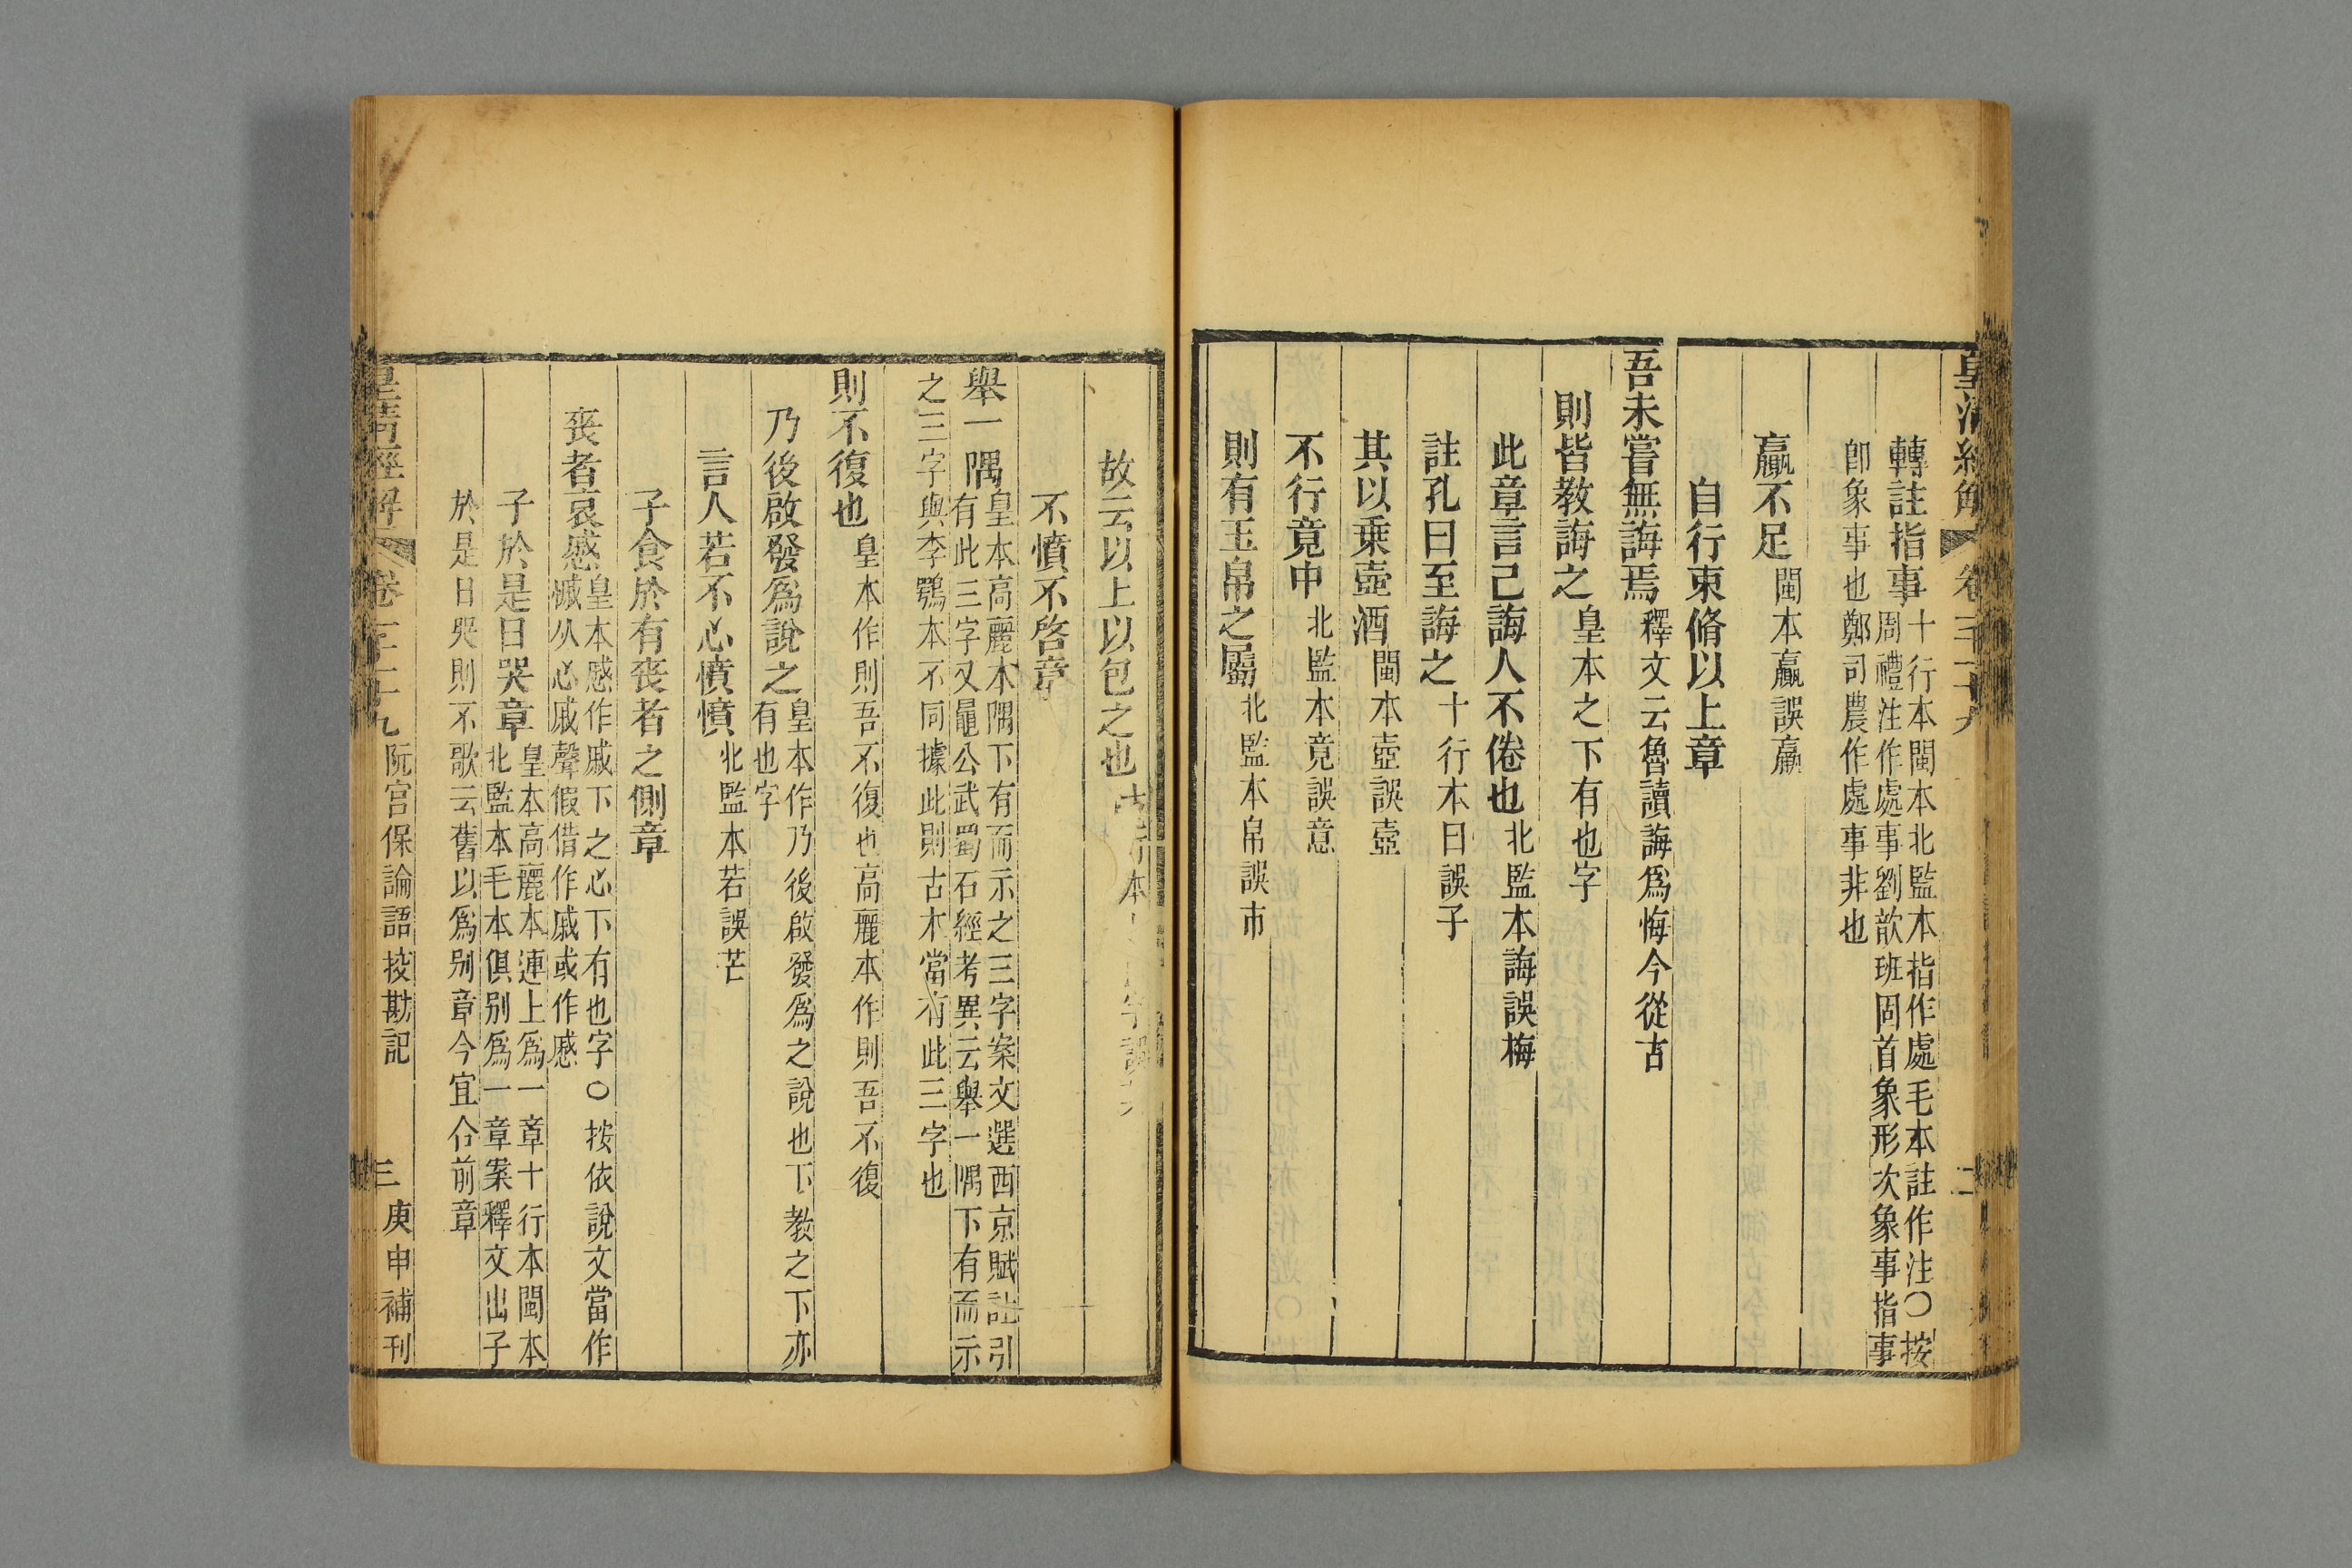 轉註指事十行本閩本北監本指作處毛本註作注○按
周禮注作處事劉歆班固首象形次象事指事
卽象事也鄭司農作處事非也
贏不足閩本贏誤羸
自行束脩以上章
吾未嘗無誨焉釋文云魯讀誨爲悔今從古
則皆教誨之皇本之下有也字
此章言己誨人不倦也北監本誨誤梅
註孔曰至誨之十行本曰誤子
其以乘壺酒閩本壺誤壼
不行竟中北監本竟誤意
則有玉帛之屬北監本帛誤市
故云以上以包之也
不憤不啓章
舉一隅皇本高麗本隅下有而示之三字案文選西京賦註引
有此三字又鼂公武蜀石經考異云舉一隅下有而示
之三字與李鶚本不同據此則古本當有此三字也
則不復也皇本作則吾不復也高麗本作則吾不復
乃後啟發爲說之皇本作乃後啟發爲之說也下教之下亦
有也字
言人若不心憤憤北監本若誤芒
子食於有喪者之側章
喪者哀慼皇本慼作戚下之心下有也字○按依說文當作
慽从心戚聲假借作戚或作慼
子於是日哭章皇本高麗本連上爲一章十行本閩本
北監本毛本俱别爲一章案釋文出子
於是日哭則不歌云舊以爲别章今宜合前章
皇清經解 卷一千十九 阮宮保論語挍勘記 三 庚申補刊